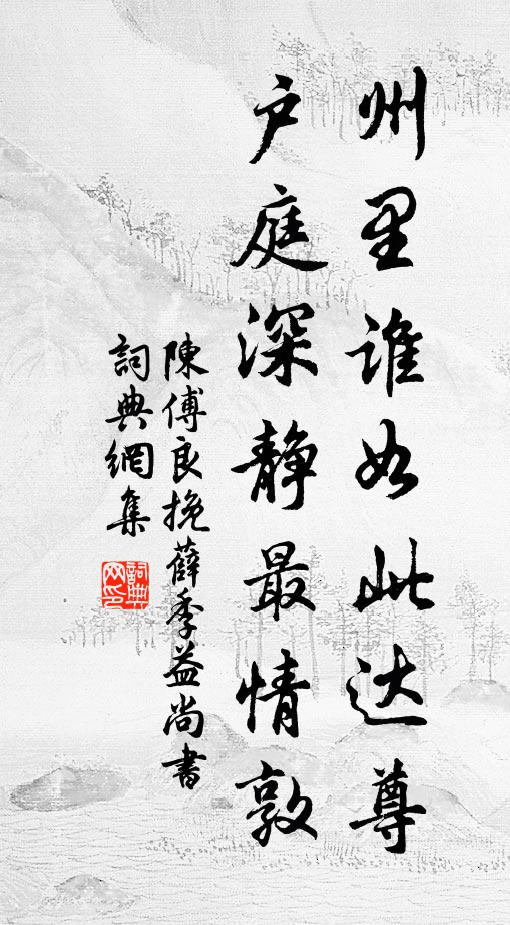 州里谁如此达尊
户庭深静最情敦
陳傅良挽薛季益尚書
詞典網集
詞典
网印